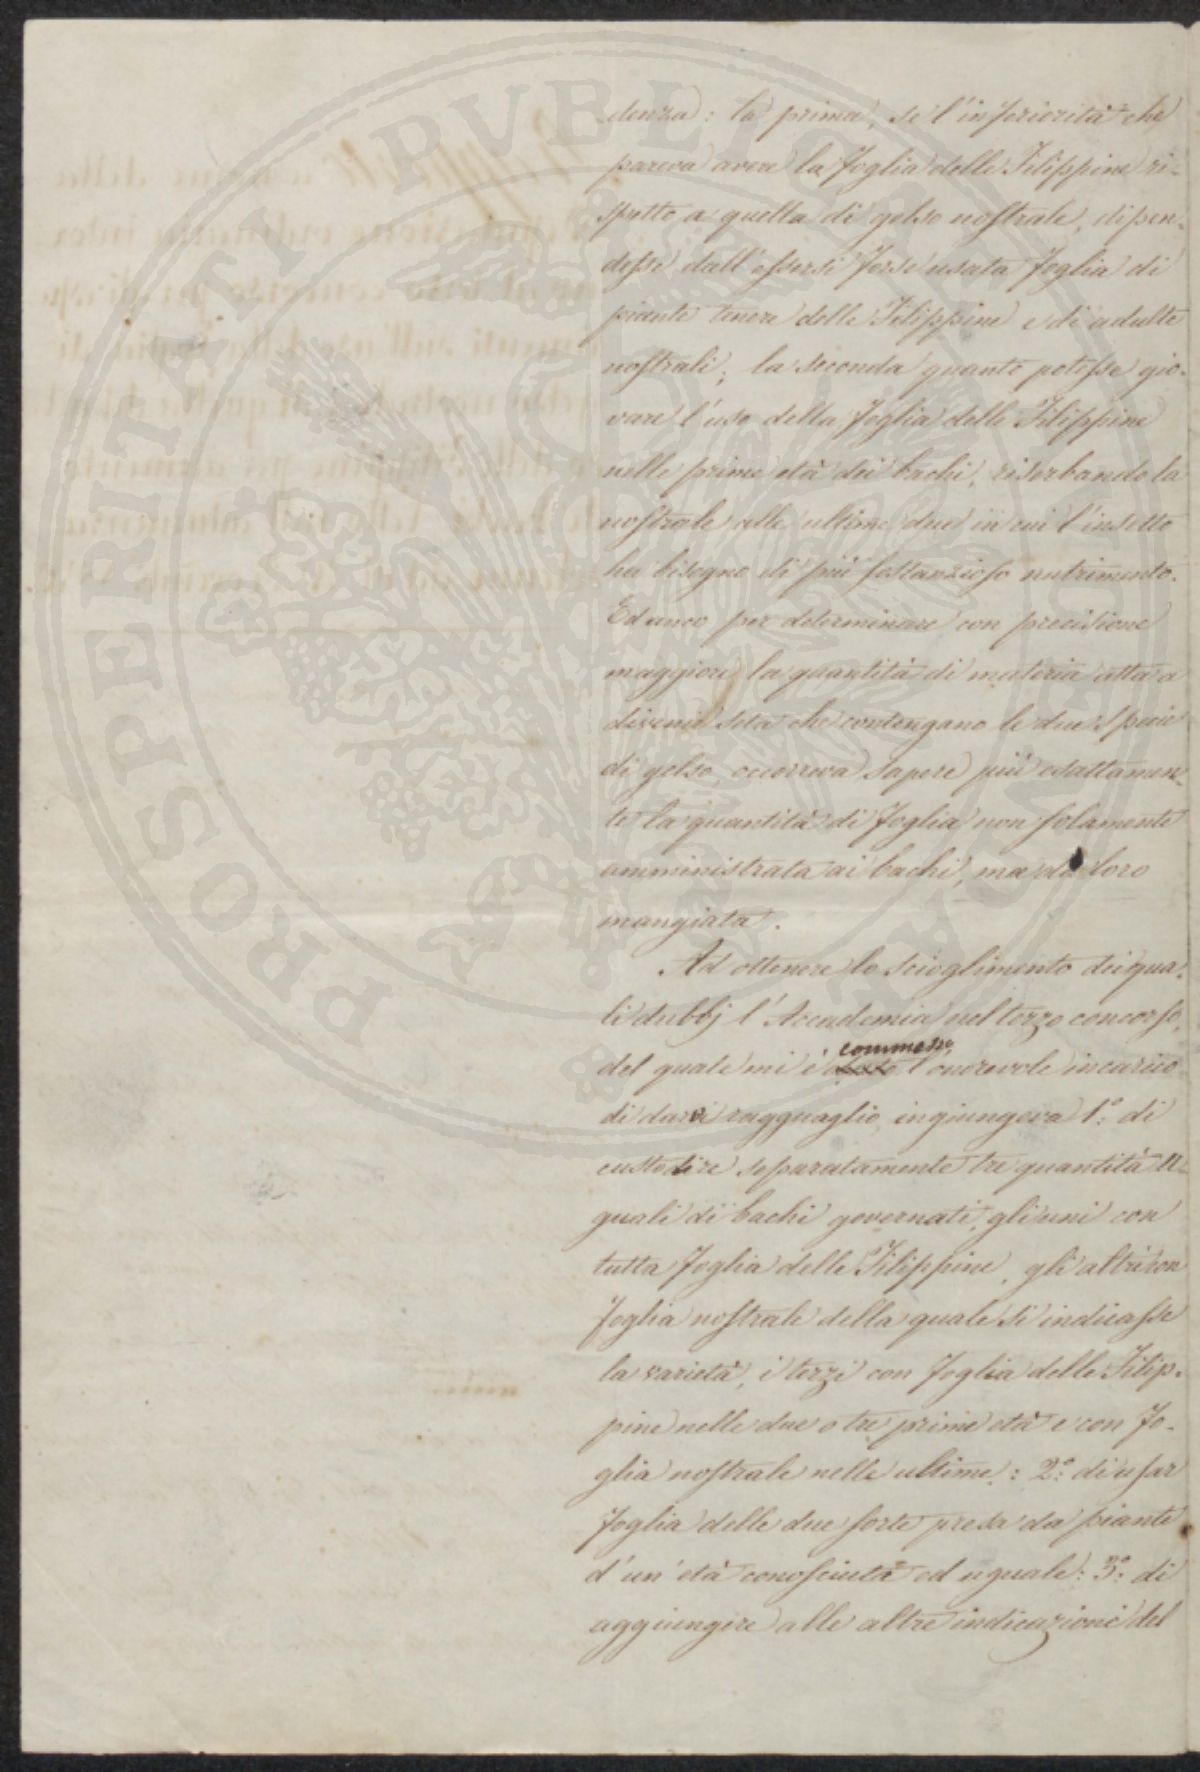 denza: la prima, se l'inferiorità che
pareva avere la foglia delle Filippine ri-
spetto a quella di gelso nostrale, dipen-
desse dall'essersi forse usata foglia di
piante tenere delle Filippine e di adulte
nostrali; la seconda quanto potesse gio-
vare l'uso della foglia delle Filippine
nelle prime età dei bachi, riserbando la
nostrale alle ultime due in cui l'insetto
ha bisogno di più sostanzioso nutrimento.
Ed anco per determinare con precisione
maggiore la quantità di materia atta a
divenir seta che contengano le due specie
di gelso occorreva sapere più esattamen-
te la quantità di foglia non solamente
amministrata ai bachi, ma da loro
mangiata.
Ad ottenere lo scioglimento dei qua-
li dubbj l'Accademia nel terzo concorso,
commesso
del quale mi è dato l'onorevole incarico
di darvi ragguaglio, ingiungeva 1º: di
custodire separatamente tre quantità u-
guali di bachi governati, gli uni con
tutta foglia delle Filippine, gli altri con
foglia nostrale della quale si indicasse
la varietà, i terzi con foglia delle Filip-
pine nelle due o tre prime età e con fo-
glia nostrale nelle ultime: 2º: di usar
foglia delle due sorte presa da piante
d'un'età conosciuta ed uguale: 3º: di
aggiungere alle altre indicazioni del
PROSPERITATI PVBLICAE